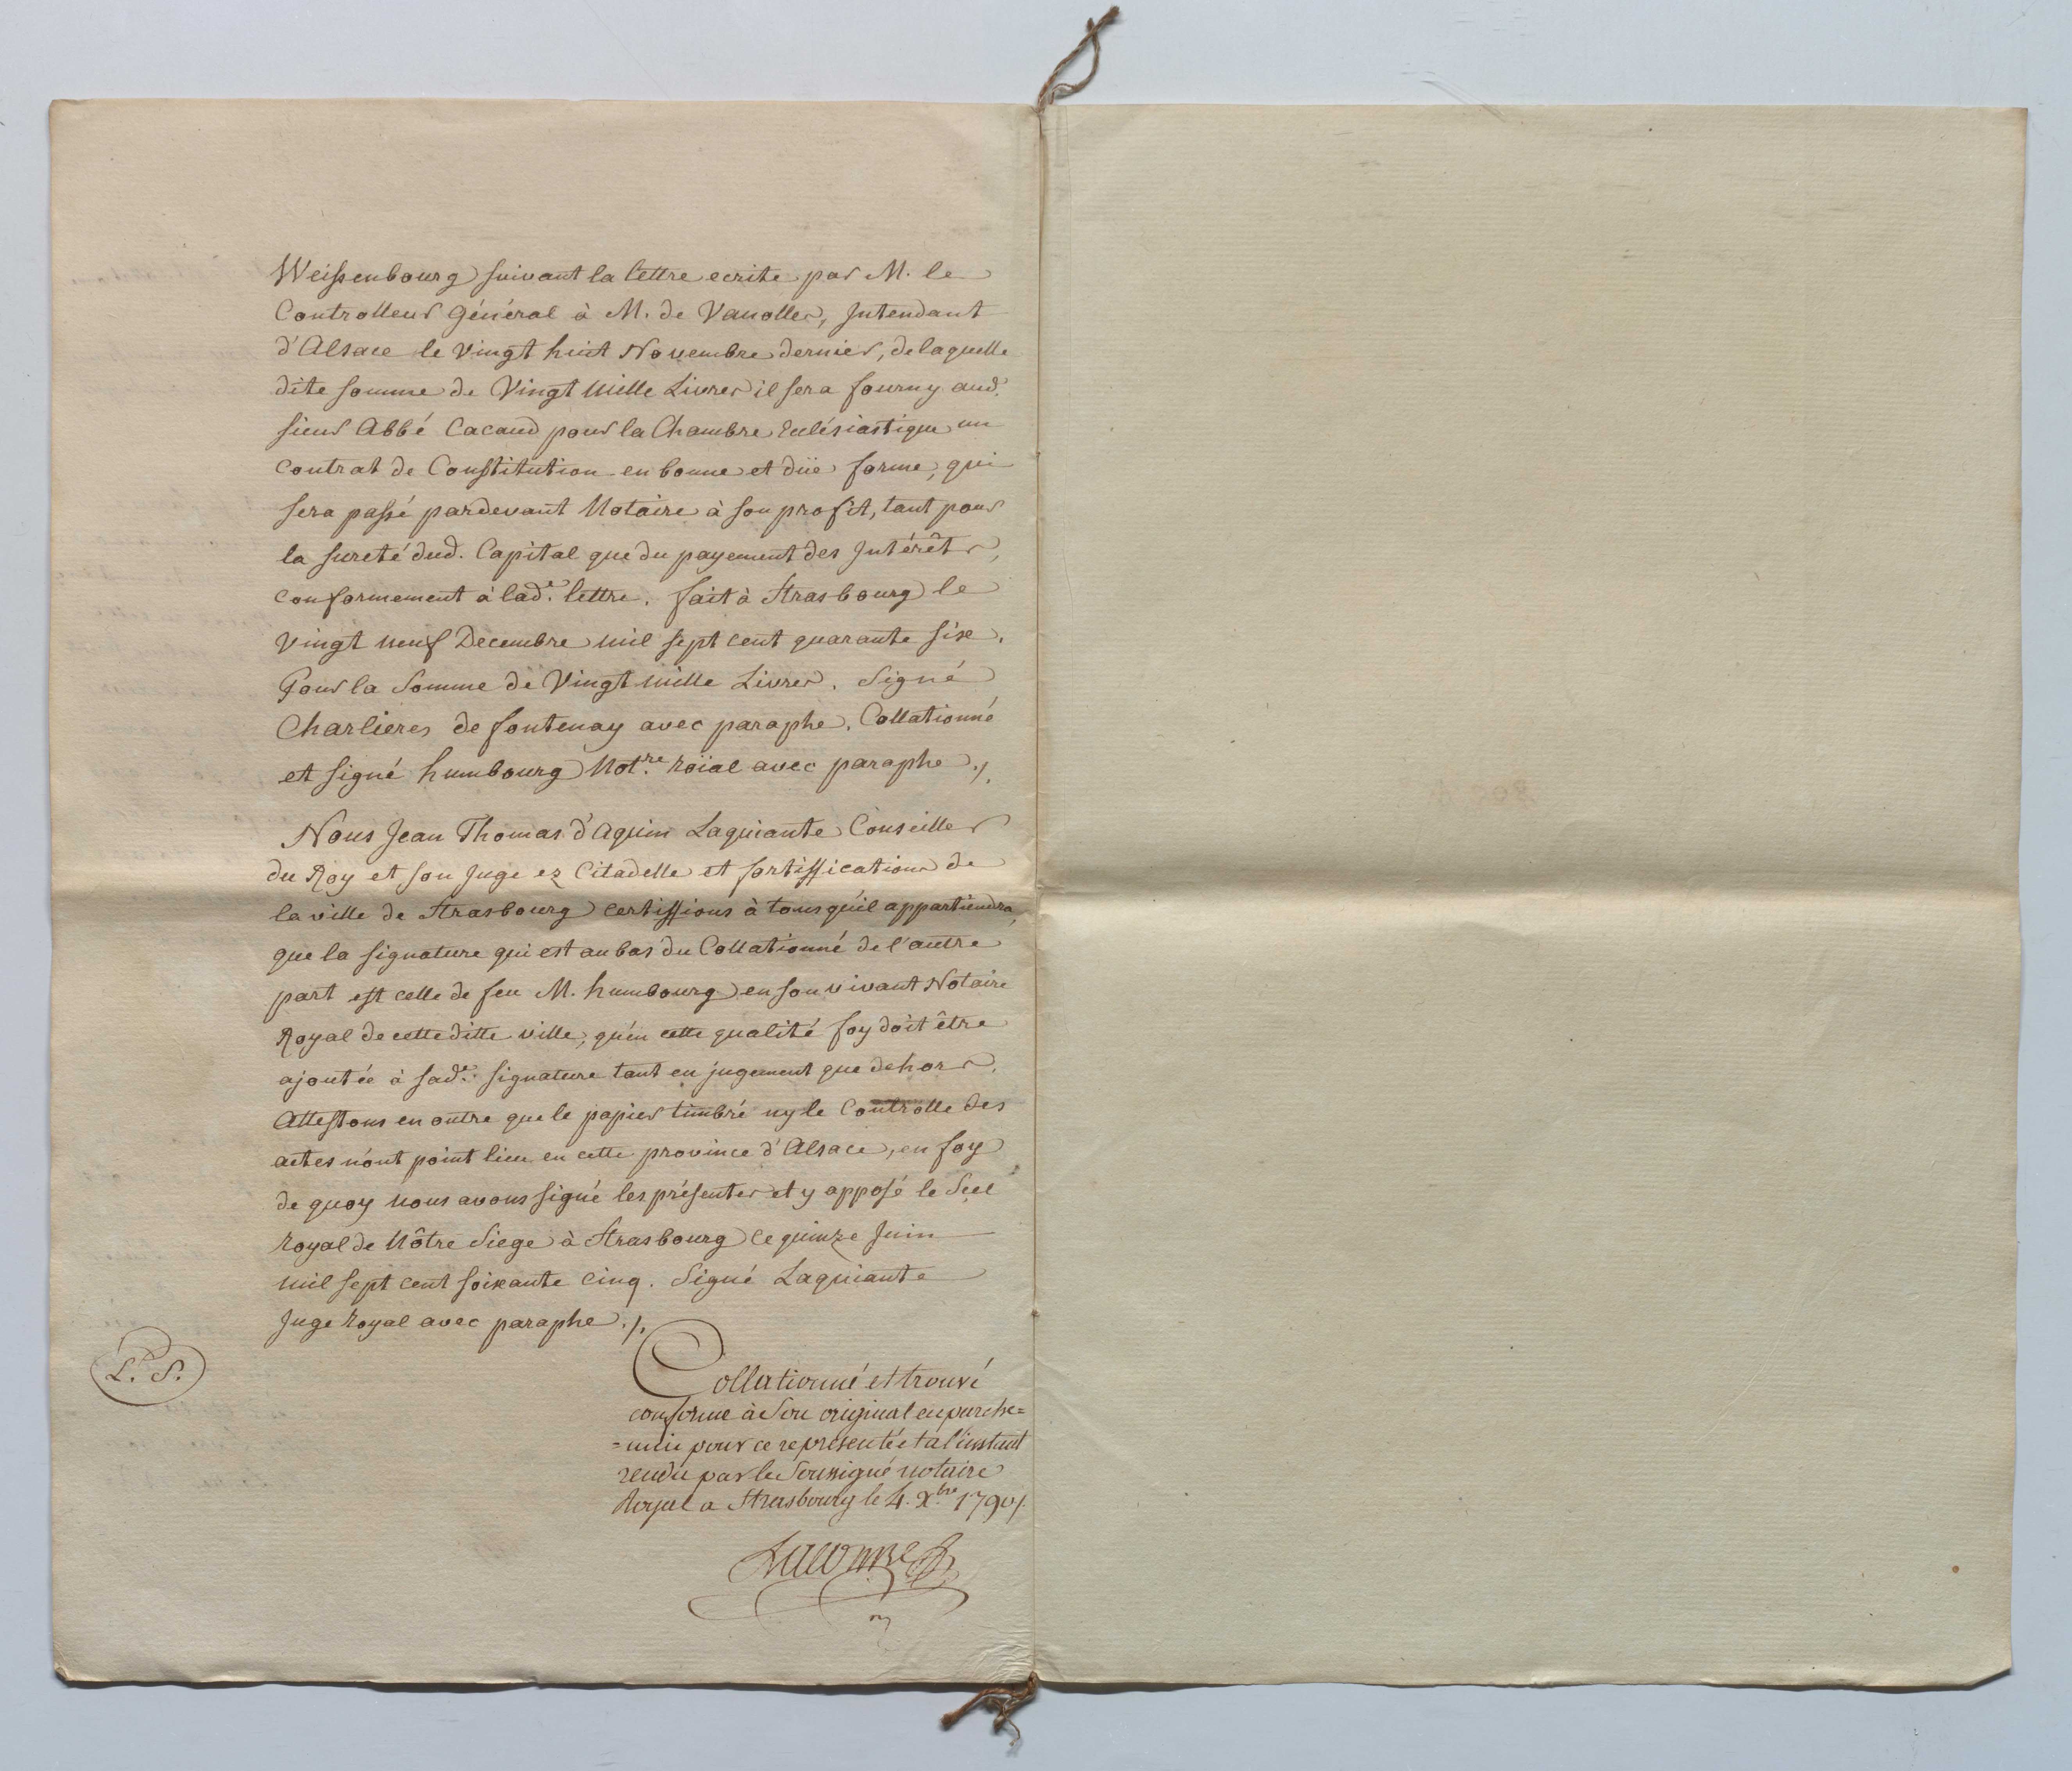 Weissenbourg suivant la lettre ecrite par M. le
Controlleur Général à M. de Vanolles, Intendant
d'Alsace le vingt huit Novembre dernier, de laquelle
dite somme de Vingt mille Livres il sera fourny aud.
sieur Abbé Cacaud pour la Chambre Eclésiastique un
contrat de Constitution en bonne et düe forme, qui
sera passé pardevant Notaire à son profit, tant pour
la sureté dud. Capital que du payement des Intérêts,
conformement à lad.e lettre. fait à Strasbourg le
vingt neuf Decembre mil sept cent quarante six.
Pour la Somme de Vingt mille Livres. Signé
Charlieres de fontenay avec paraphe. Collationné
et signé humbourg Not.re roïal avec paraphe ./.
Nous Jean Thomas d'Aquin Laquiante Conseiller
du Roy et son Juge ez Citadelle et fortiffications de
la ville de Strasbourg certiffions à tous qu'il appartiendra,
que la signature qui est au bas du Collationné de l'autre
part est celle de feu M. humbourg en son vivant Notaire
Royal de cette ditte ville, qu'en cette qualité foy doit être
ajoutée à sad.e signature tant en jugement que dehors.
Attestons en outre que le papier timbré ny le Controlle des
actes n'ont point lieu en cette province d'Alsace, en foy
de quoy nous avons signé les présentes et y apposé le Scel
royal de Nôtre Siege à Strasbourg ce quinze Juin
mil sept cent soixante cinq. Signé Laquiante
Juge Royal avec paraphe ./.
L. S.
Collationné et trouvé
conforme à son original en parche=
=min pour ce representé et a l'instant
rendu par le Soussigné notaire
Royal a Strasbourg le 4. Xbre 1790 ./.
Lacombe